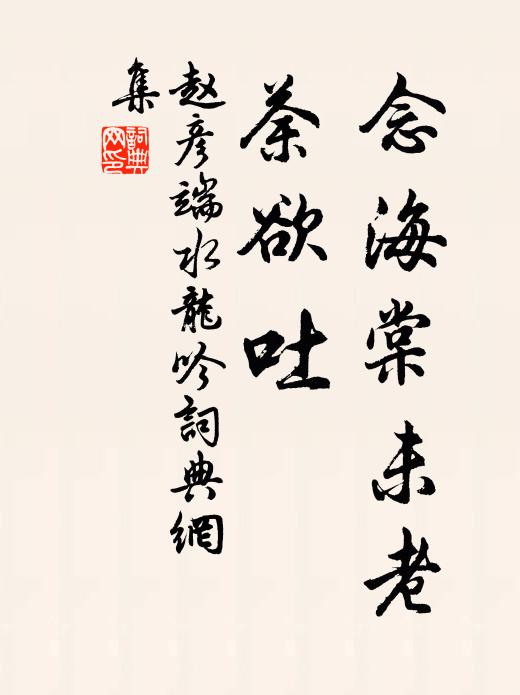 念海棠未老
荼欲吐
赵彦端水龍吟詞典網
集
詞典
网印